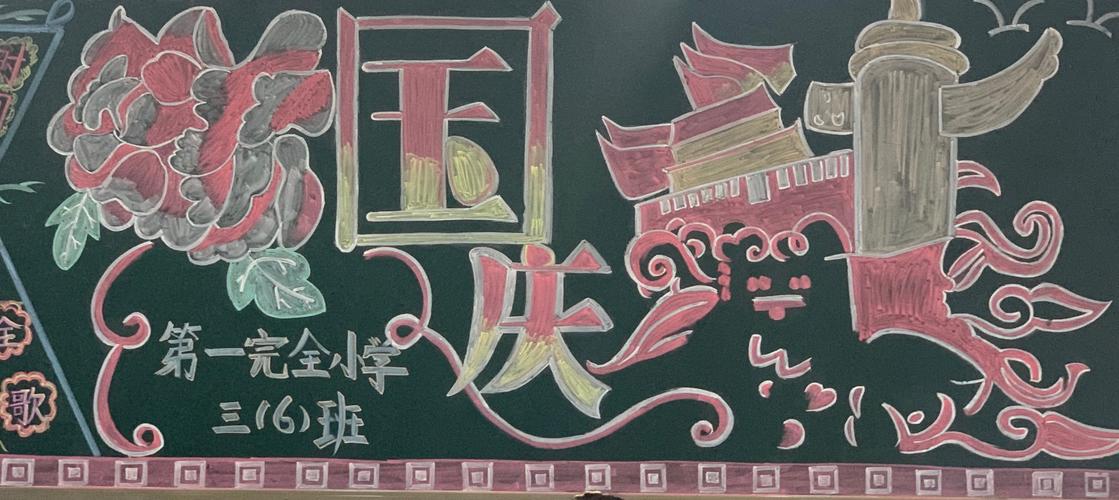 国
庆
第一完全小学
三(6)班
全
歌